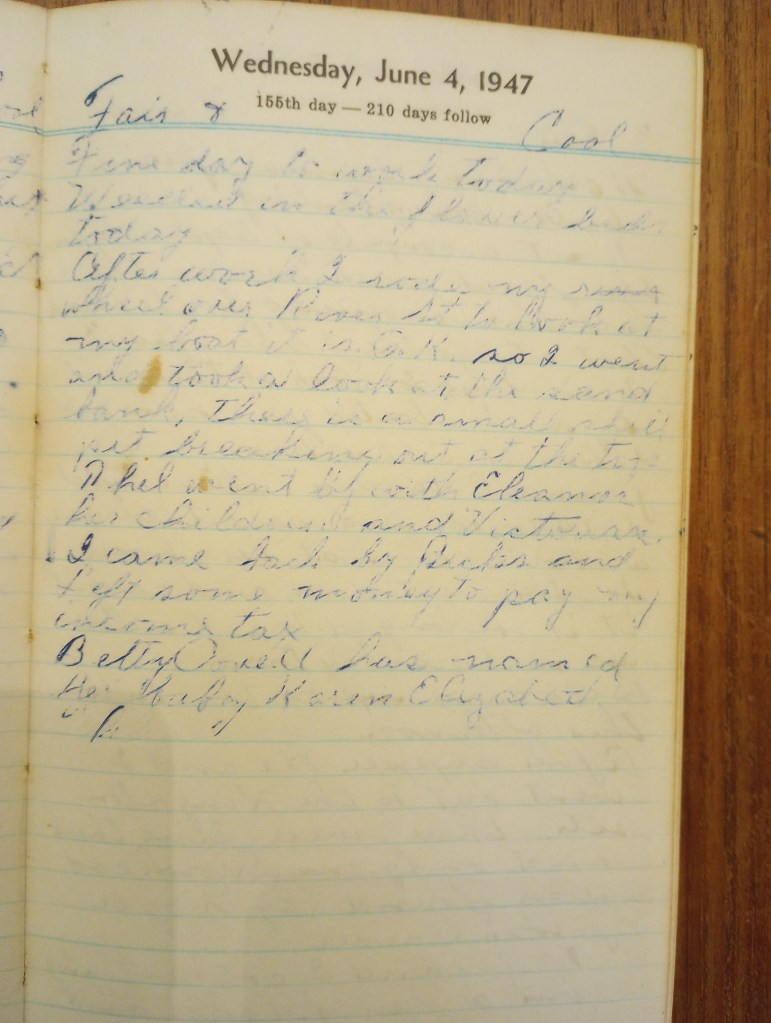 Wednesday, June 4, 1947
155th day — 210 days follow
Fair & Cool
Fine day to work today
Weeded in the flower beds
today
After work I rode my
wheel over River St to look at
my boat it is O.K. so I went
and took a look at the sand
bank, there is a small
pit breaking out at the top
Ethel went by with Eleanor
her children and Victorian.
I came back by and
left some money to pay my
income tax
Betty has named
Her baby Karen Elizabeth